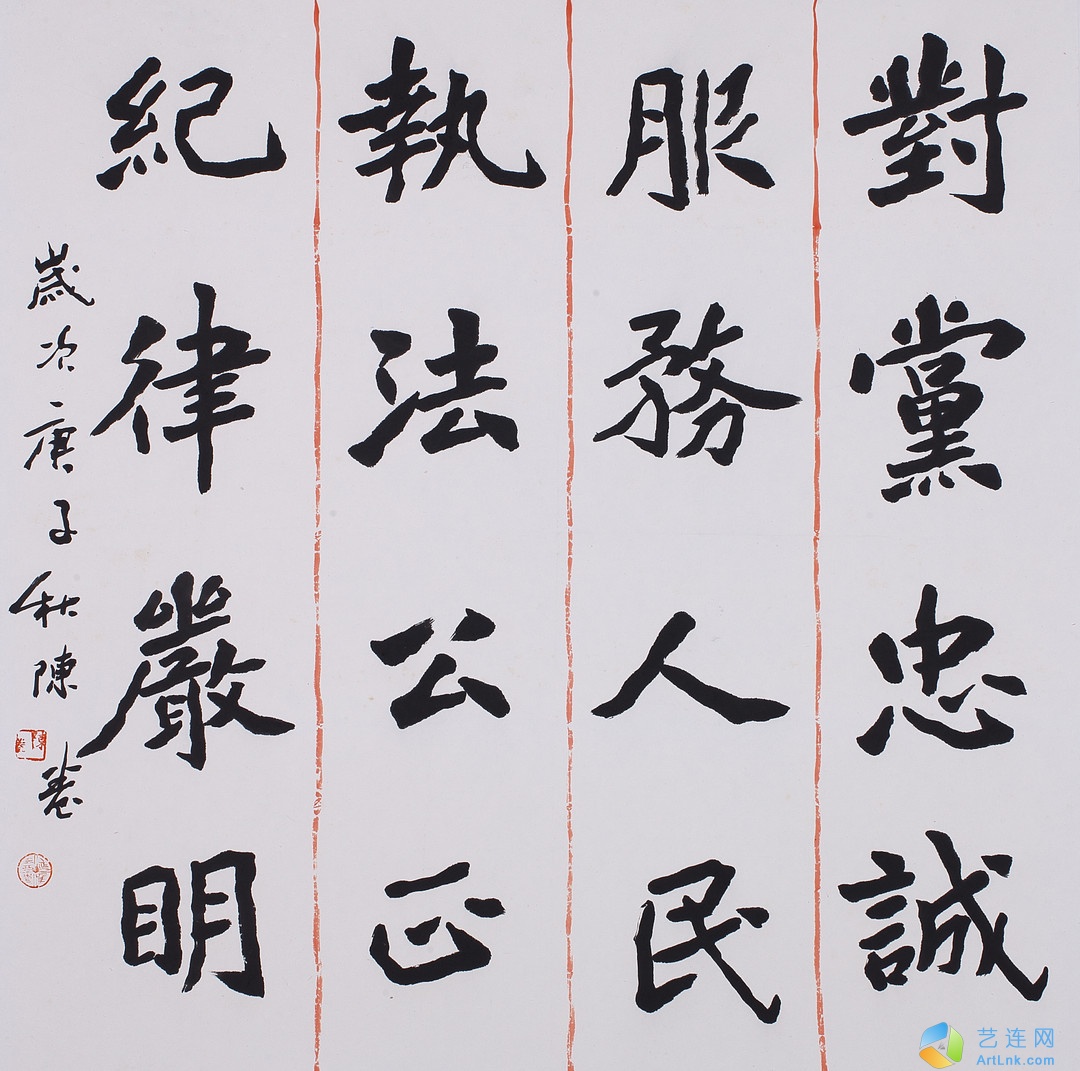 對黨忠誠
服務人民
執法公正
紀律嚴明
歲次庚子秋陳
艺连网
ArtLnk.com